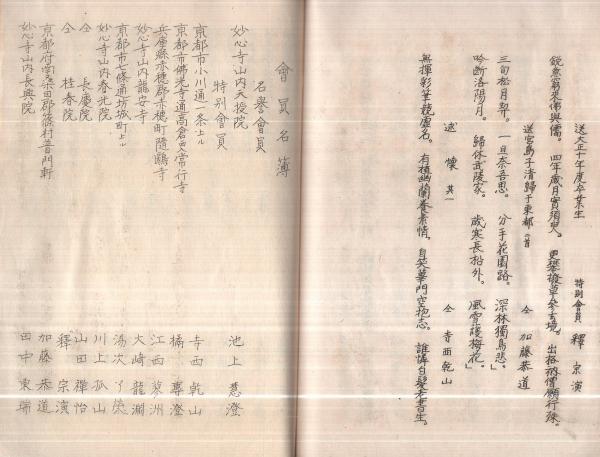 送大正十年度卒業生
特別會員 釋 宗演
鋭意窮來佛與儒。四年歲月實須臾。更攀撥草參玄境。出格衲僧願行殊。
送宮島子清歸于東都 一首
仝 加藤恭道
三旬松月契。一旦奈吾思。分手花園路。深林獨鳥悲。
吟斷洛陽月。歸休武陵家。歲寒長松外。風雪護梅花。
述懷 其一
仝 寺西乾山
無揮彩筆競虛名。有植幽蘭養素情。自笑蓽門空抱志。誰憐白髮老書生。
會員名簿
名譽會員
妙心寺山内天授院 池上慧澄
特別會員
京都市小川通一条上ル 寺西乾山
京都市佛光寺通高倉東常行寺 橘專澄
兵庫縣赤穗郡赤穗町隨鷗寺 江西蓼洲
妙心寺山内龍安寺 大崎龍淵
京都市七條通坊城町上ル 湯次了榮
妙心寺山内春光院 川上孤山
仝 長慶院 山田禪怡
仝 桂春院 釋宗演
京都府南桑田郡篠村普門軒 加藤恭道
妙心寺山内長興院 田中東瑞